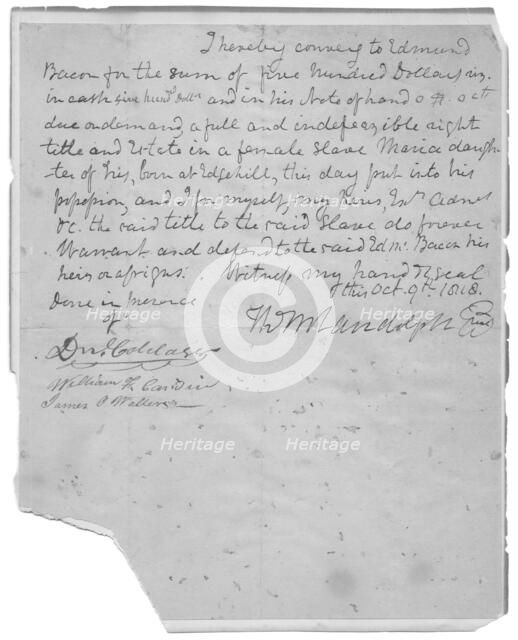 I hereby convey to Edmund
Bacon for the sum of five hundred Dollars viz.
in cash five hund.d Dolls and in his Note of hand 0 $. 0 cts
due on demand a full and indefeazible right
title and Estate in a female slave Maria daugh-
ter of Iris, born at Edgehill, this day put into his
possession, and I for myself, my heirs, Exrs Admrs
&c. the said title to the said slave do forever
Warrant and defend to the said Edm. Bacon his
heirs or assigns. Witness my hand & seal
this Oct. 9th. 1818.
Done in presence
of
Th M Randolph
William
James
Heritage
Heritage
Heritage
Heritage
Heritage
Heritage
Heritage